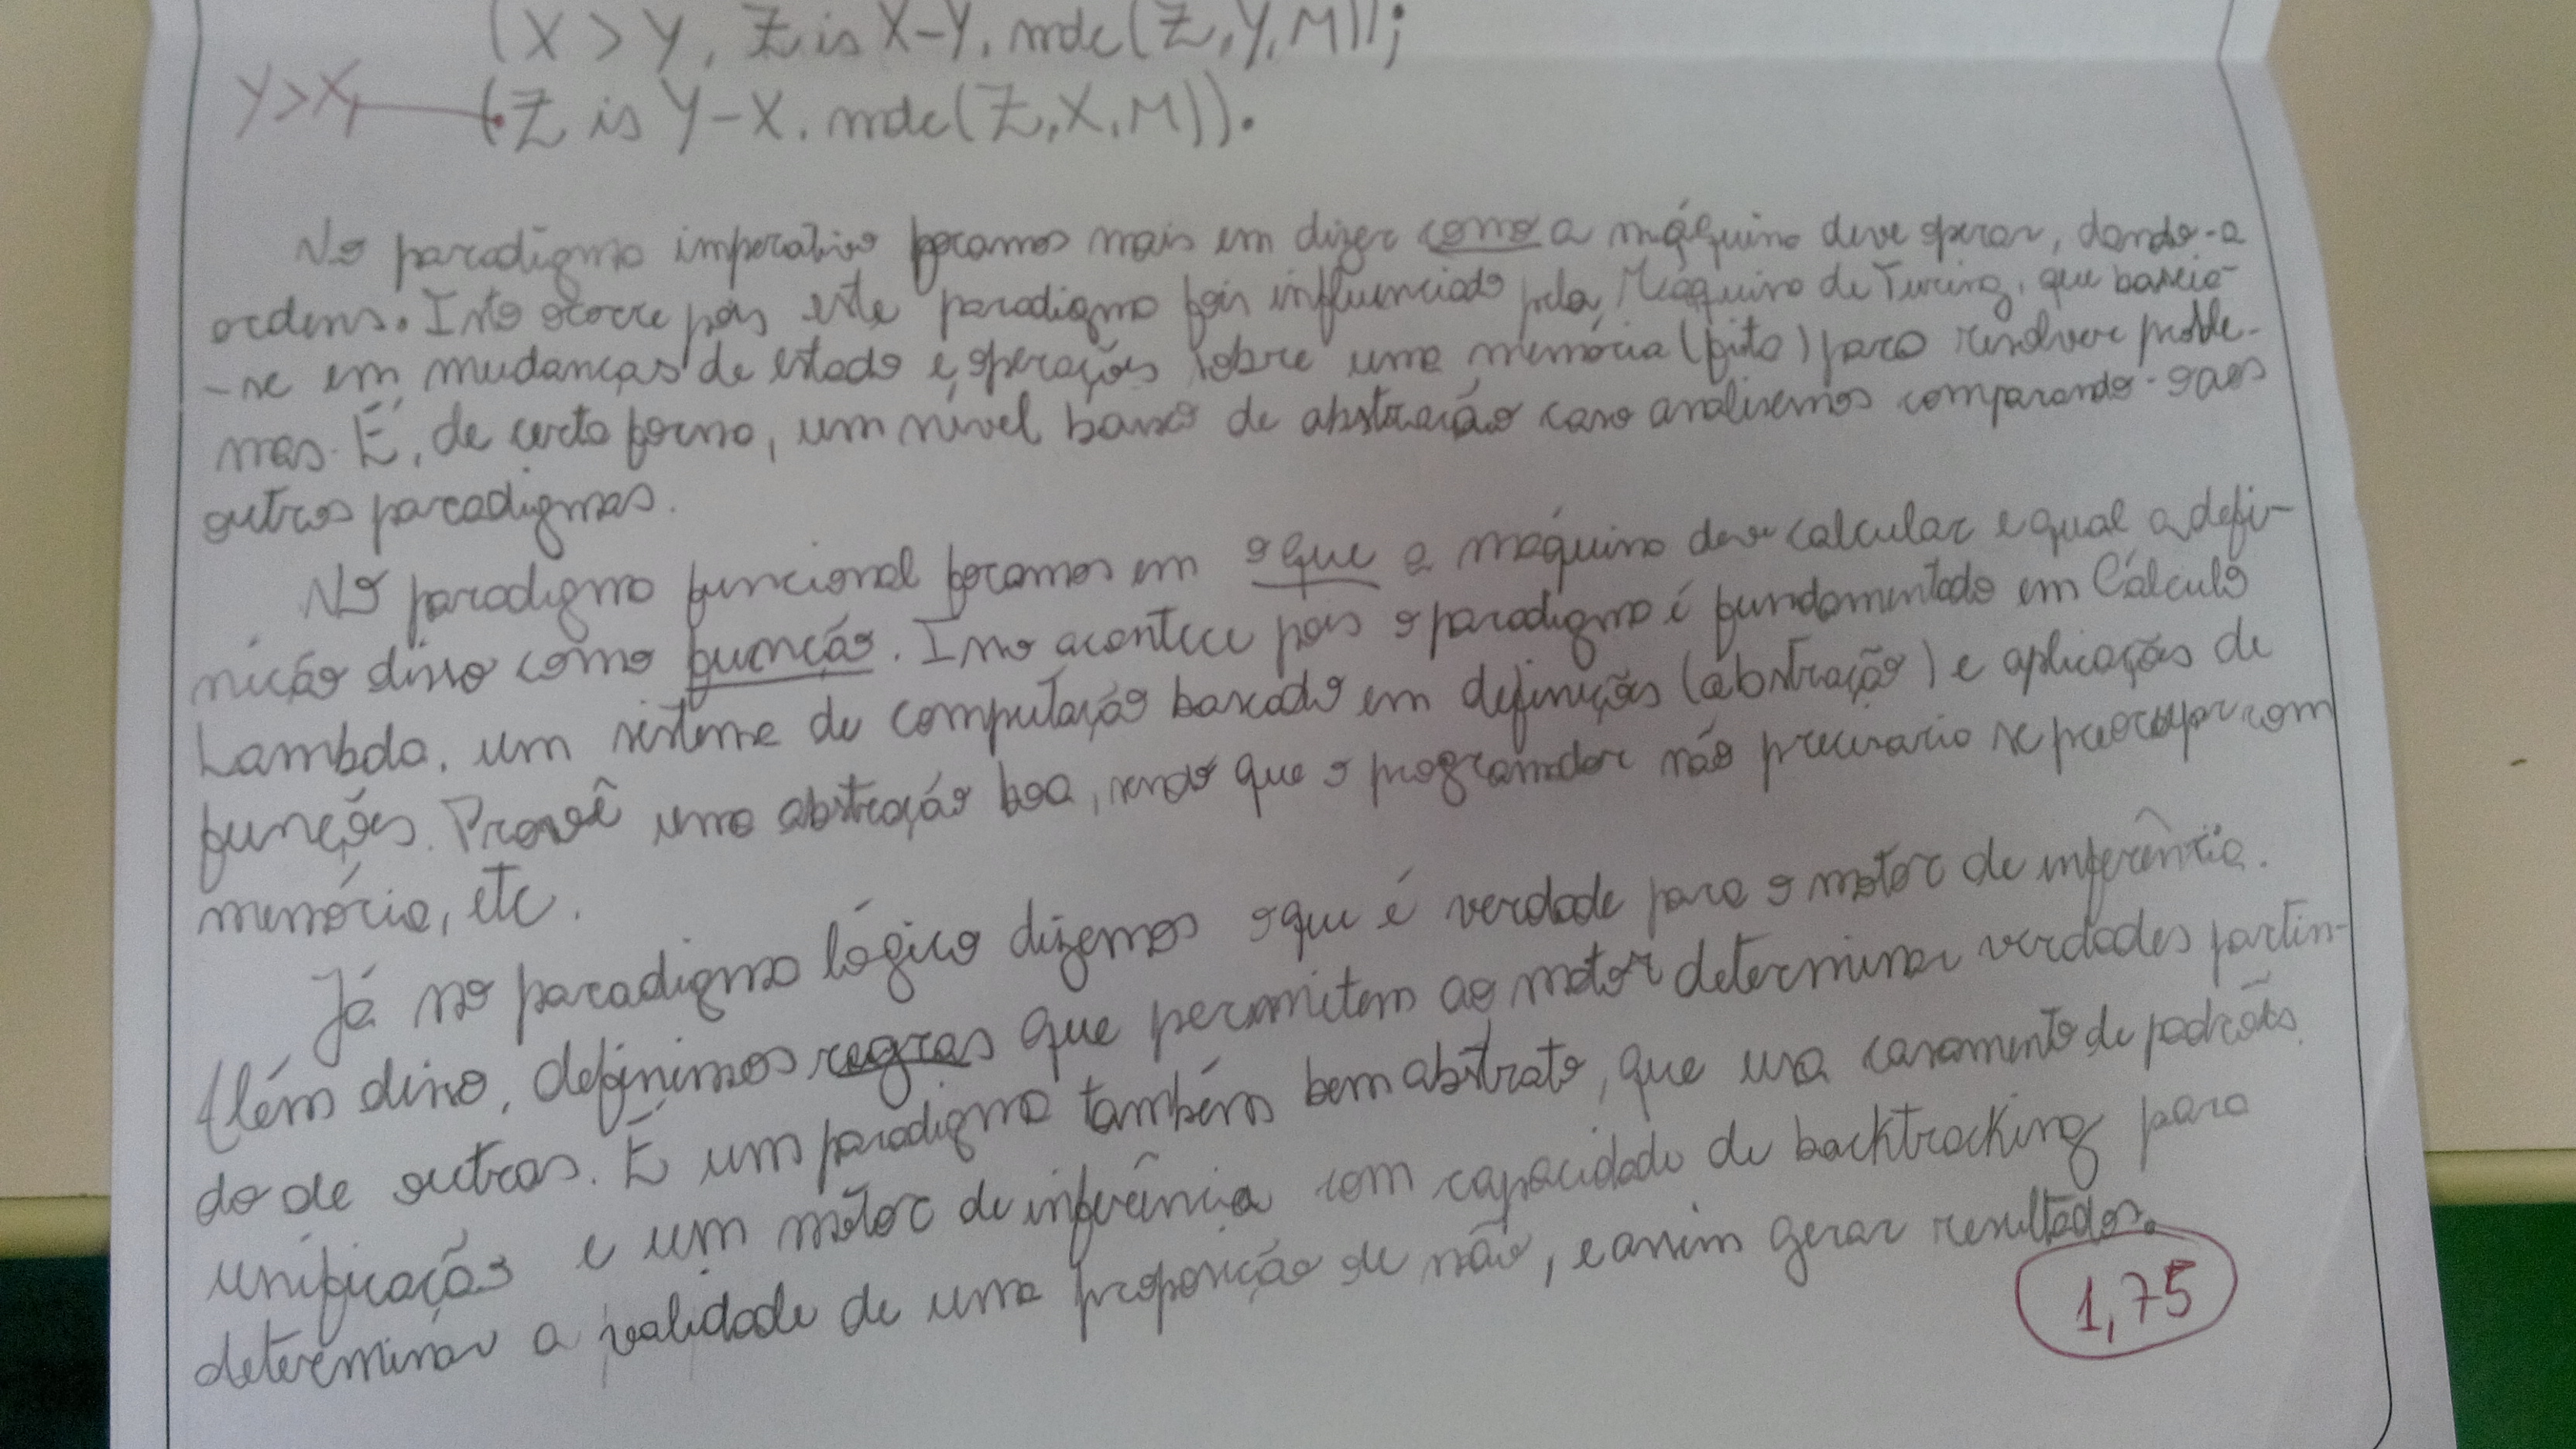 (X > Y, Z is X-Y, mdc(Z,Y,M));
Y>X, (Z is Y-X, mdc(Z,X,M)).
No paradigma imperativo focamos mais em dizer como a máquina deve operar, dando-a
ordens. Isto ocorre pois este paradigma foi influenciado pela Máquina de Turing, que baseia-
-se em mudanças de estado e operações sobre uma memória (fita) para resolver proble-
mas. É, de certa forma, um nível baixo de abstração caso analisemos comparando-o aos
outros paradigmas.
No paradigma funcional focamos em o que a máquina deve calcular e qual a defi-
nição disso como função. Isso acontece pois o paradigma é fundamentado em Cálculo
Lambda, um sistema de computação baseado em definições (abstração) e aplicações de
funções. Provê uma abstração boa, sendo que o programador não precisaria se preocupar com
memória, etc.
Já no paradigma lógico dizemos o que é verdade para o motor de inferência.
Além disso, definimos regras que permitem ao motor determinar verdades partin-
do de outras. É um paradigma também bem abstrato, que usa casamento de padrões,
unificação e um motor de inferência com capacidade de backtracking para
determinar a validade de uma proposição ou não, e assim gerar resultados.
1,75